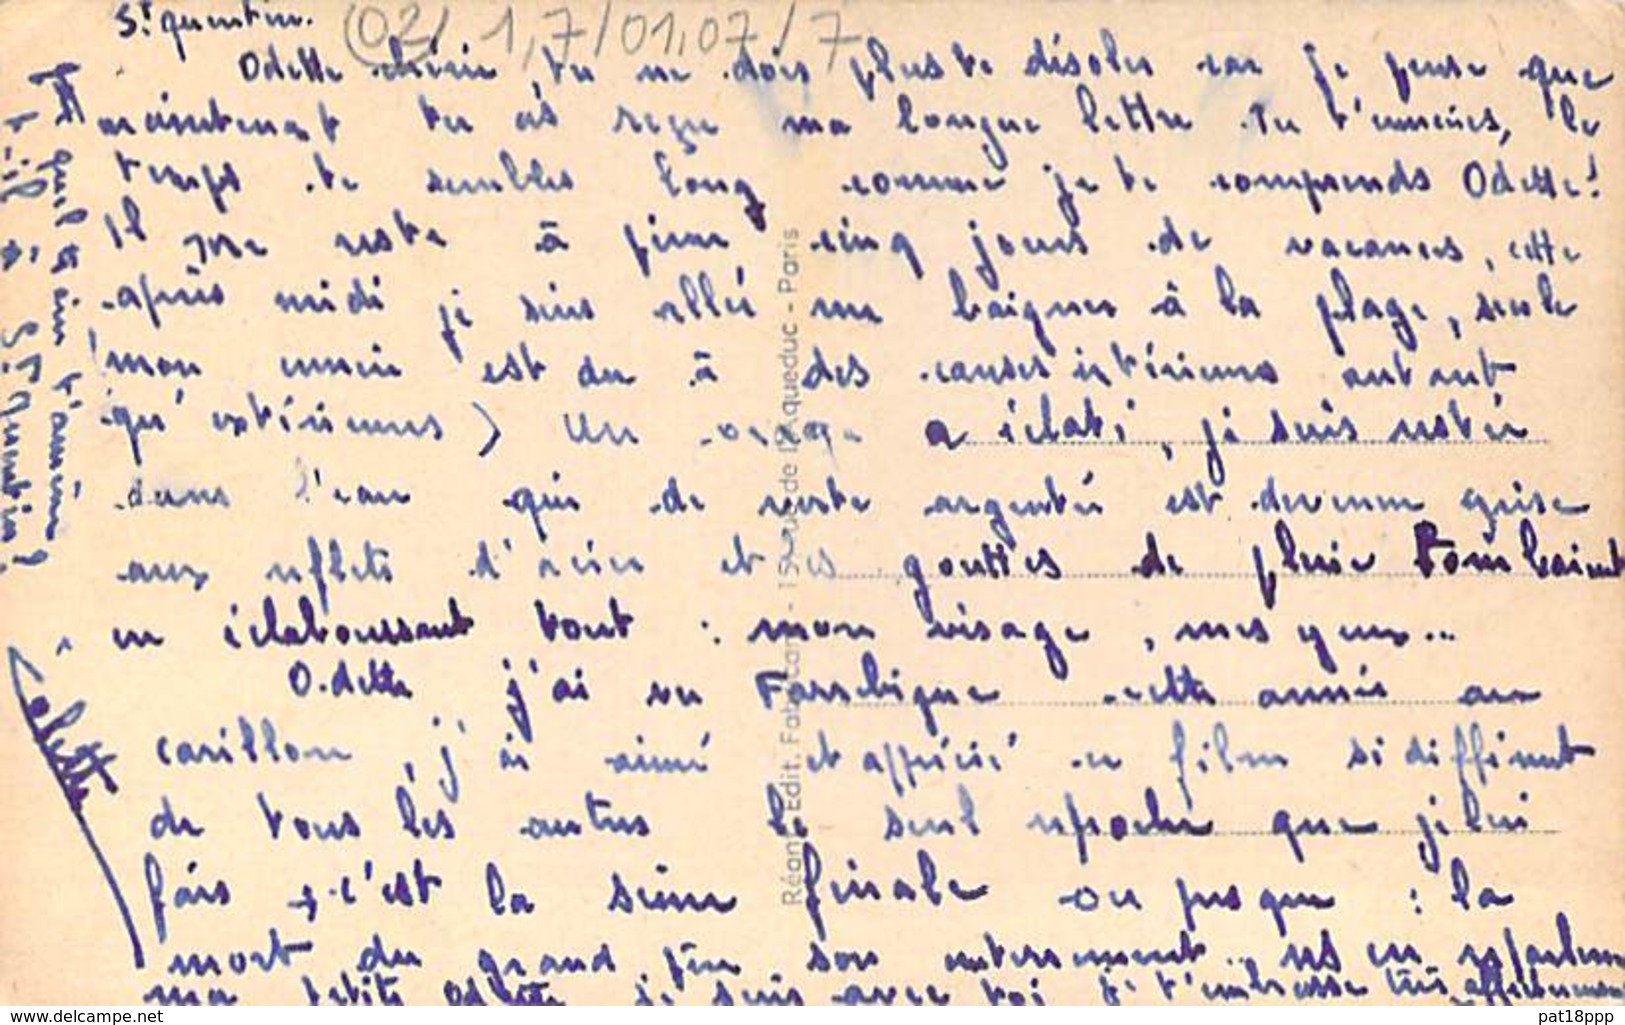 St quentin.
(02) 1,7/01.07/7
Odette chérie, tu ne dois plus te désoler car je pense que
maintenant tu as reçu ma longue lettre. Tu t'ennuies, le
temps te sembles long comme je te comprends Odette!
Il me reste à peine cinq jours de vacances, cette
après midi je suis allée me baigner à la plage, seule
mon ennui est du à des causes intérieures autant
qu'extérieures) Un orage a éclaté, je suis restée
dans l'eau qui de verte argentée est devenue grise
aux reflets d'acier et les gouttes de pluie tombaient
en éclaboussant tout : mon visage, mes yeux...
Odette j'ai vu Farrebique cette année au
carillon, j'ai aimé et apprécié ce film si différent
de tous les autres le seul reproche que je lui
fais, c'est la scène finale ou presque : la
mort du grand père son enterrement...
ma petite Odette je suis avec toi je t'embrasse très affectueusement
Colette
Et quel t-il à St Quentin?
Réant Edit. Fabricant - 15 rue de l'Aqueduc - Paris
delcampe.net
pat18ppp